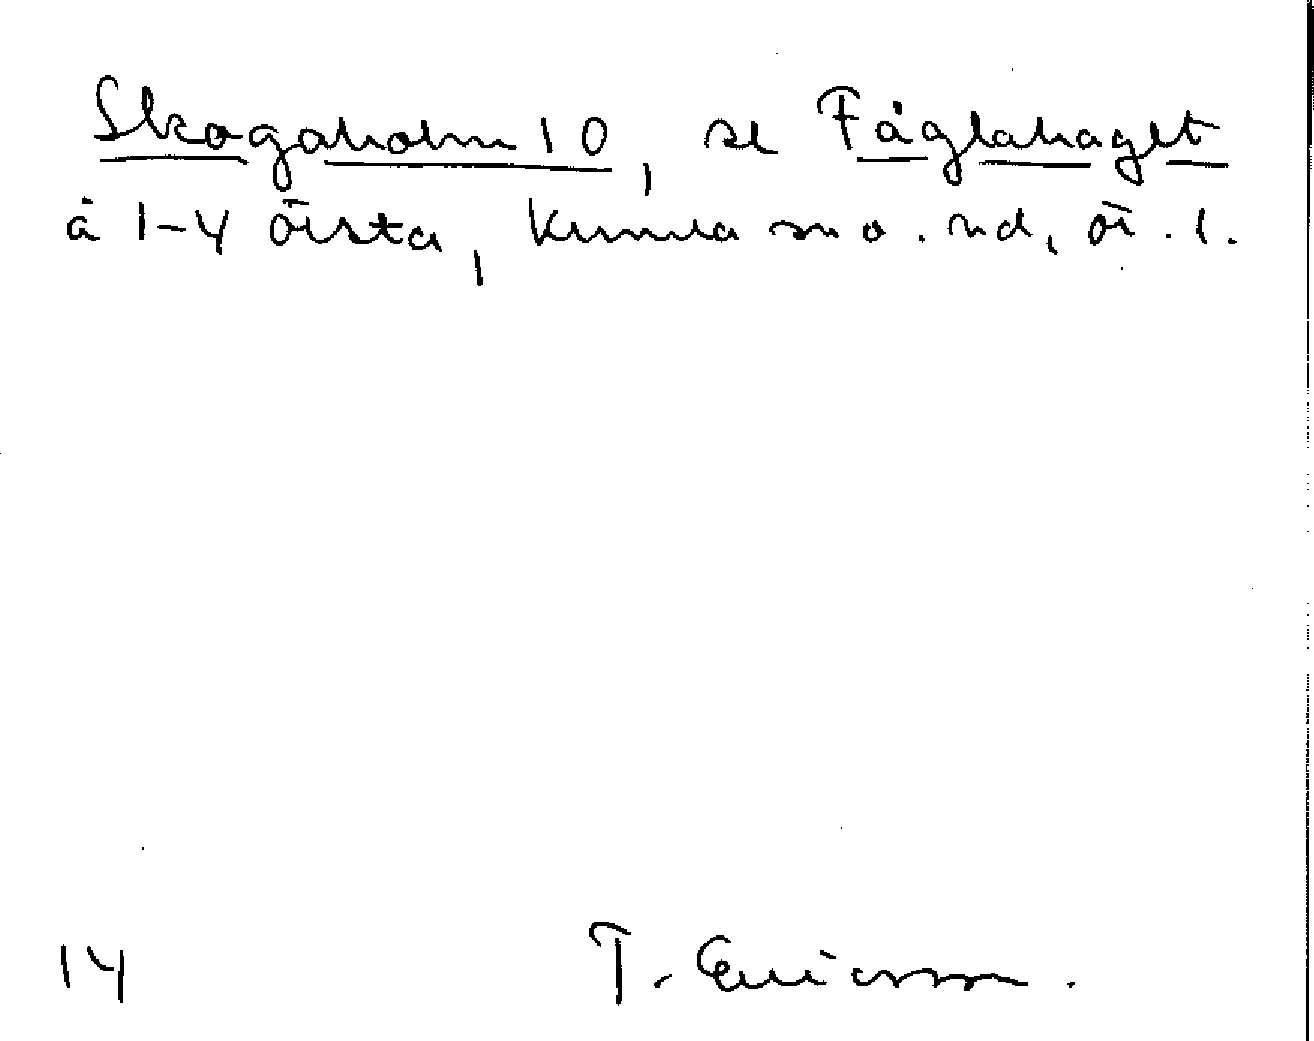 Skogaholm 10, se Fåglahaget
å 1-4 Örsta, Kumla sn o. hd, ör. l.
14 T. Ericsson.